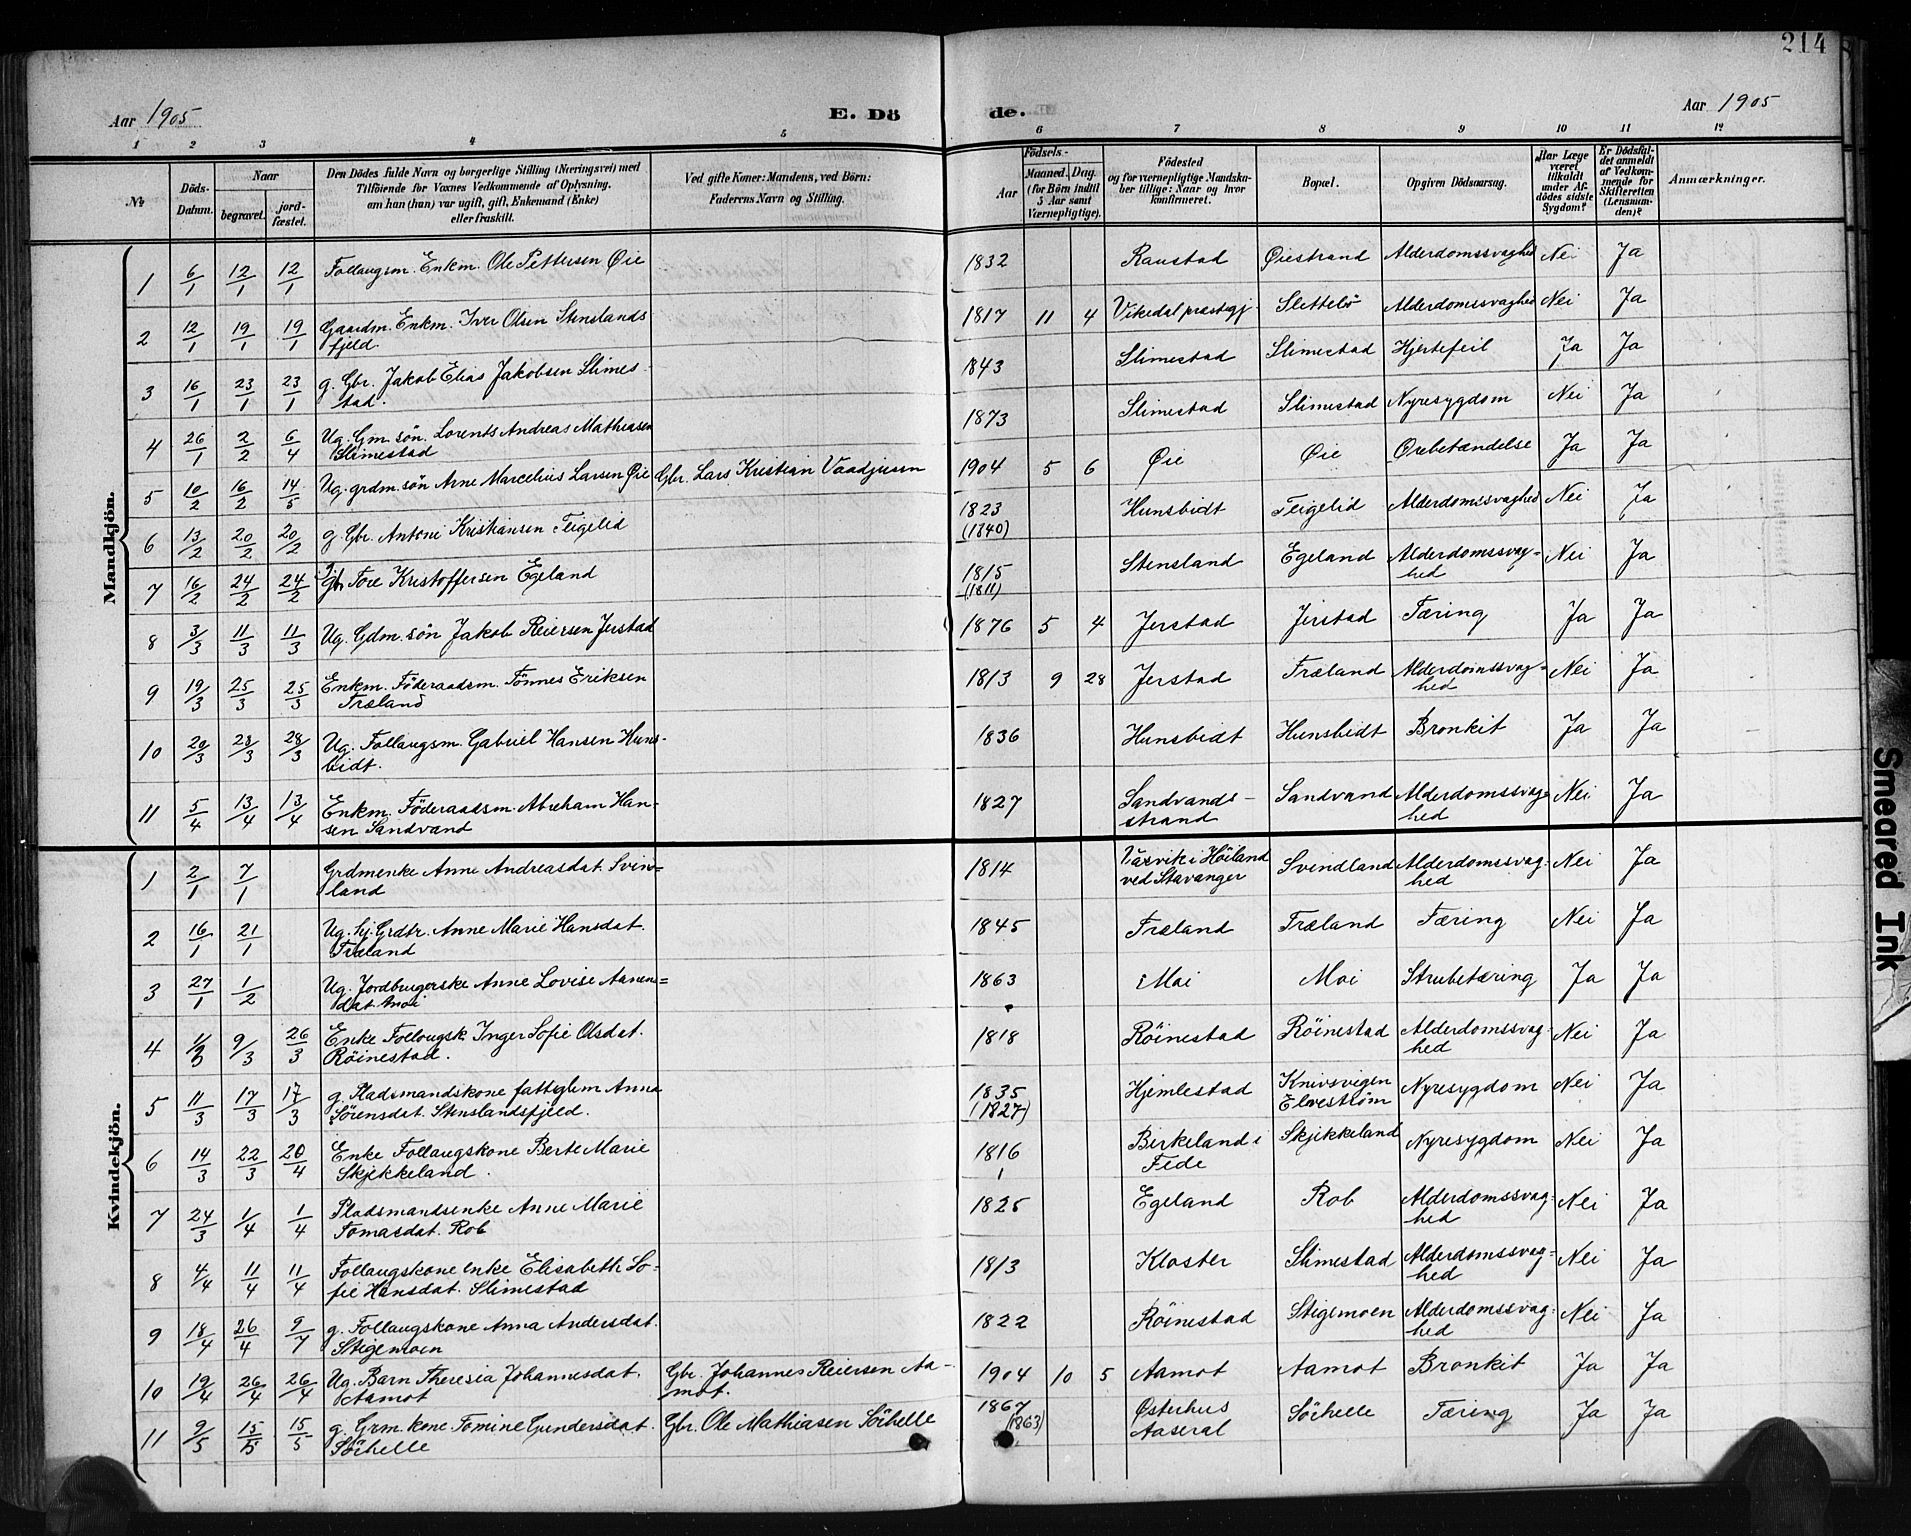 214
Aar 1905
E. Dö
de.
Aar 1905
1 2 3 4 5 6 7 8 9 10 11 12
№
Döds-Datum.
Naar
begravet.
jord-fæstet.
Den Dödes fulde Navn og borgerlige Stilling (Næringsvei) med
Tilföiende for Voxnes Vedkommende af Oplysning,
om han (hun) var ugift, gift, Enkemand (Enke)
eller fraskilt.
Ved gifte Koner: Mandens, ved Börn:
Faderens Navn og Stilling.
Födsels-
Aar
Maaned. Dag.
(for Börn indtil
3 Aar samt
Værnepligtige).
Födested
og for værnepligtige Mandska-
ber tillige: Naar og hvor
konfirmeret.
Bopæl.
Opgiven Dödsaarsag.
Har Læge
været
tilkaldt
under Af-
dödes sidste
Sygdom?
Er Dödsfal-
det anmeldt
af Vedkom-
mende for
Skifteretten
(Lensman-
den)?
Anmærkninger.
Mandkjön.
1 6/1 12/1 12/1 Follaugsm. Enkm. Ole Pettersen Öie 1832 Raustad Öiestrand Alderdomssvaghed Nei Ja
2 12/1 19/1 19/1 Gaardm. Enkm. Iver Olsen Stenslands 1817 11 4 Vikedal præstegj Slettebö Alderdomssvaghed Nei Ja
fjeld.
3 16/1 23/1 23/1 g. Gbr. Jakob Elias Jakobsen Slimes- 1843 Slimestad Slimestad Hjertefeil Ja Ja
tad.
4 26/1 2/2 6/4 Ug. Gm. sön. Lorents Andreas Mathiasen 1873 Slimestad Slimestad Nyresygdom Nei Ja
Slimestad
5 10/2 16/2 14/5 Ug. grdm. sön Arne Marcelius Larsen Öie Gbr. Lars Kristian Vaadjusen 1904 5 6 Öie Öie Örebetændelse Ja Ja
6 13/2 20/2 20/2 g. Gbr. Antoni Kristiansen Feigelid 1823 Hunsbidt Feigelid Alderdomssvaghed Nei Ja
(1840)
7 16/2 24/2 24/2 g. Gbr Tore Kristoffersen Egeland 1815 Stensland Egeland Alderdomssvag- Nei Ja
(1811) hed
8 3/3 11/3 11/3 Ug. Gdm. sön Jakob Reiersen Jerstad 1876 5 4 Jerstad Jerstad Tæring Ja Ja
9 19/3 25/3 25/3 Enkm. Föderaadsm. Tönnes Eriksen 1813 9 28 Jerstad Træland Alderdomssvag- Nei Ja
Træland hed
10 20/3 28/3 28/3 Ug. Follaugsm. Gabriel Hansen Huns- 1836 Hunsbidt Hunsbidt Bronkit Ja Ja
bidt.
11 5/4 13/4 13/4 Enkm. Föderaadsm. Abraham Han- 1827 Sandvands- Sandvand Alderdomssvag- Nei Ja
sen Sandvand strand hed
Kvindekjön.
1 2/1 7/1 Grdmenke Anne Andreasdat. Svind- 1814 Vasvik i Höiland Svindland Alderdomssvag- Nei Ja
land ved Stavanger hed
2 16/1 21/1 Ug. Sj. Grdtr. Anne Marie Hansdat. 1845 Træland Træland Tæring Nei Ja
Træland
3 27/1 1/2 Ug. Jordbrugerske Anne Lovise Aanen- 1863 Moi Moi Strubetæring Ja Ja
dat Moi
4 1/3 9/3 26/3 Enke Follougsk. Inger Sofie Olsdat. 1818 Röinestad Röinestad Alderdomssvag- Nei Ja
Röinestad. hed
5 11/3 17/3 17/3 g. Pladsmandskone fattiglem Anna 1835 Hjemlestad Knivsvigen Nyresygdom Nei Ja
Sörensdat. Stenslandsfjeld. (1827) Elveström
6 14/3 22/3 20/4 Enke Follaugskone Berte Marie 1816 Birkeland i Skjekkeland Nyresygdom Nei Ja
Skjekkeland. Fede
7 24/3 1/4 1/4 Pladsmandsenke Anne Marie 1825 Egeland Rob Alderdomssvag- Nei Ja
Tomasdat. Rob hed
8 4/4 11/4 11/4 Follaugskone enke Elisabeth So- 1813 Kloster Slimestad Alderdomssvag- Nei Ja
fie Hansdat. Slimestad hed
9 18/4 26/4 9/7 g. Follaugskone Anna Andersdat. 1822 Röinestad Stigemoen Alderdomssvag- Nei Ja
Stigemoen hed
10 19/4 26/4 26/4 Ug. Barn Theresia Johannesdat. Gbr. Johannes Reiersen Aa- 1904 10 5 Aamot Aamot Bronkit Ja Ja
Aamot mot.
11 9/5 15/5 15/5 g. Grm. kone Tomine Gundersdat. Gbr. Ole Mathiasen Söihelle 1867 Österhus Söihelle Tæring Ja Ja
Söihelle (1863) Aaseral
Smeared Ink